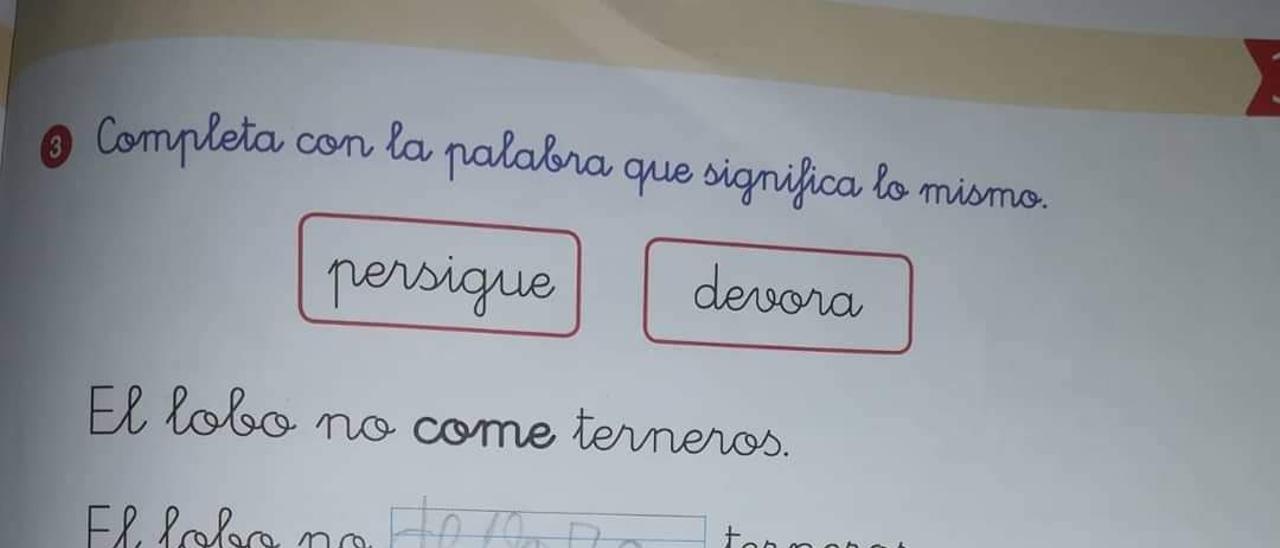 3 Completa con la palabra que significa lo mismo.
persigue devora
El lobo no come terneros.
El lobo no